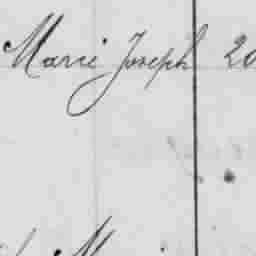 Marie Joseph 20